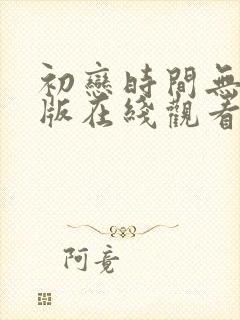 初戀時間無
版在綫觀看
阿竟